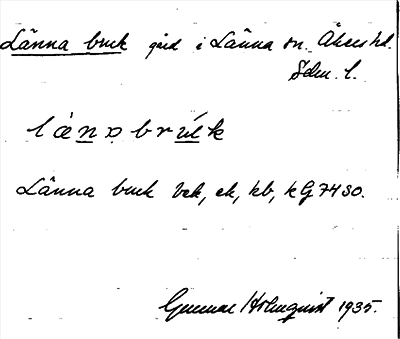 Länna bruk gård i Länna sn. Åkers hd.
Södm. l.
Länna bruk bek, ek, hb, k G 7430.
Gunnar Holmquist 1935.